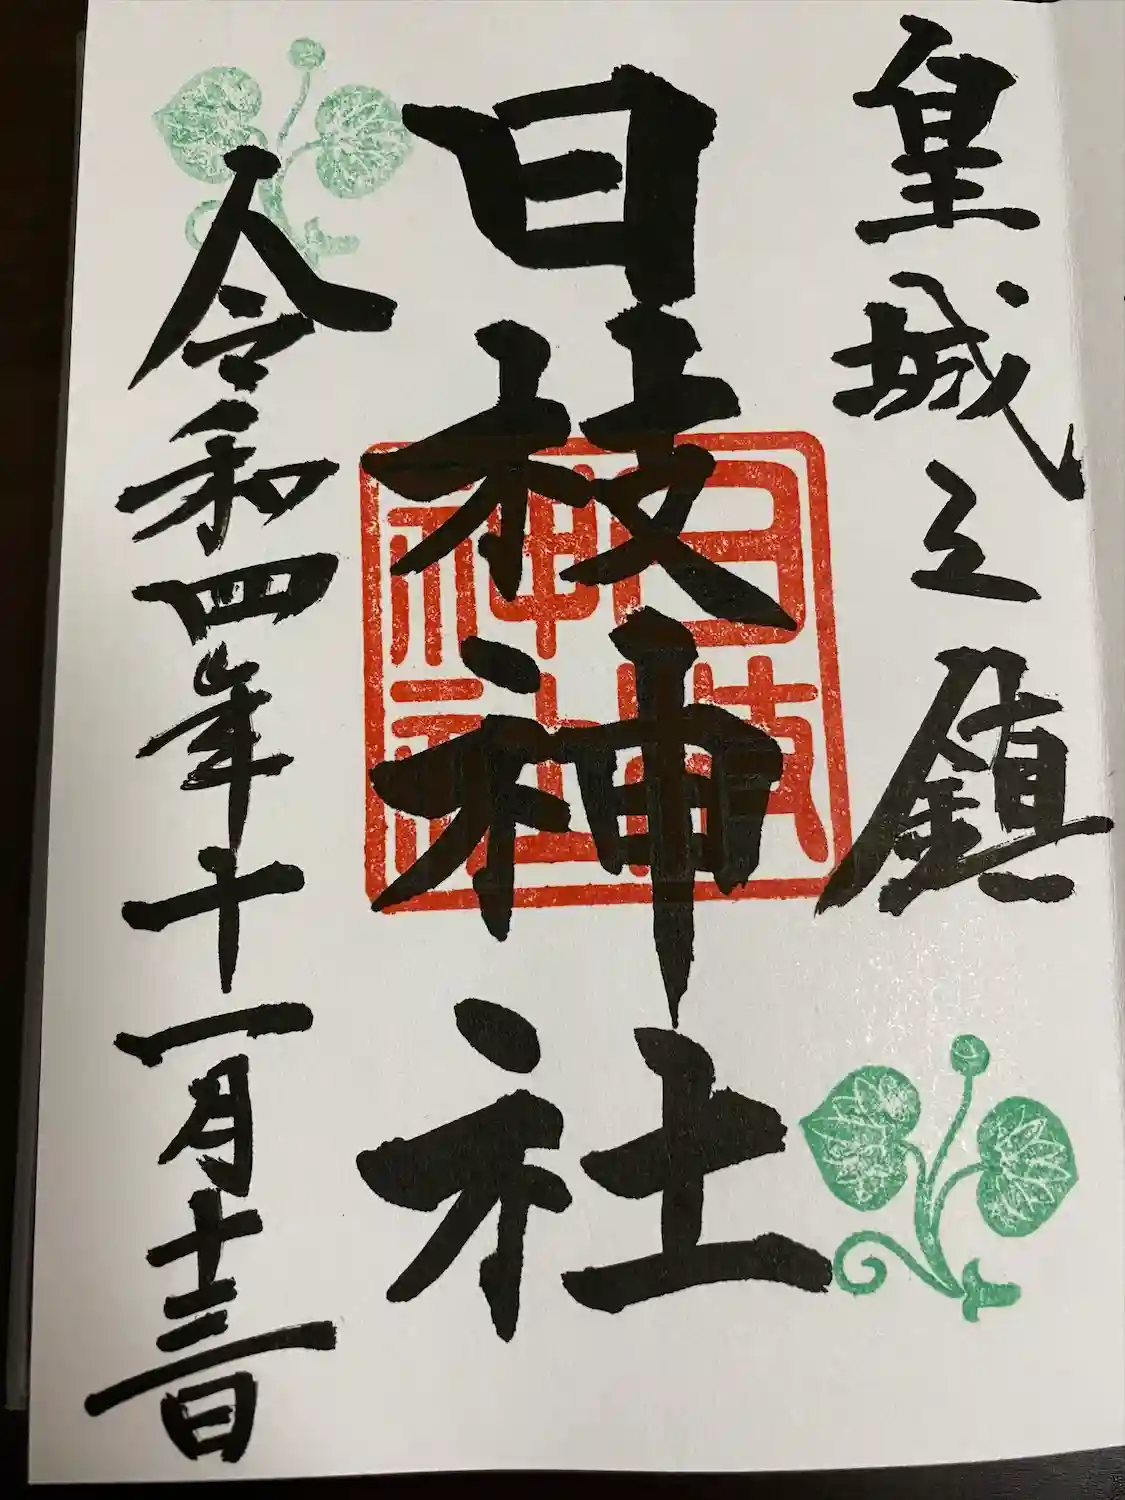 皇城之鎮
日枝神社
日枝神社
令和四年十一月十三日